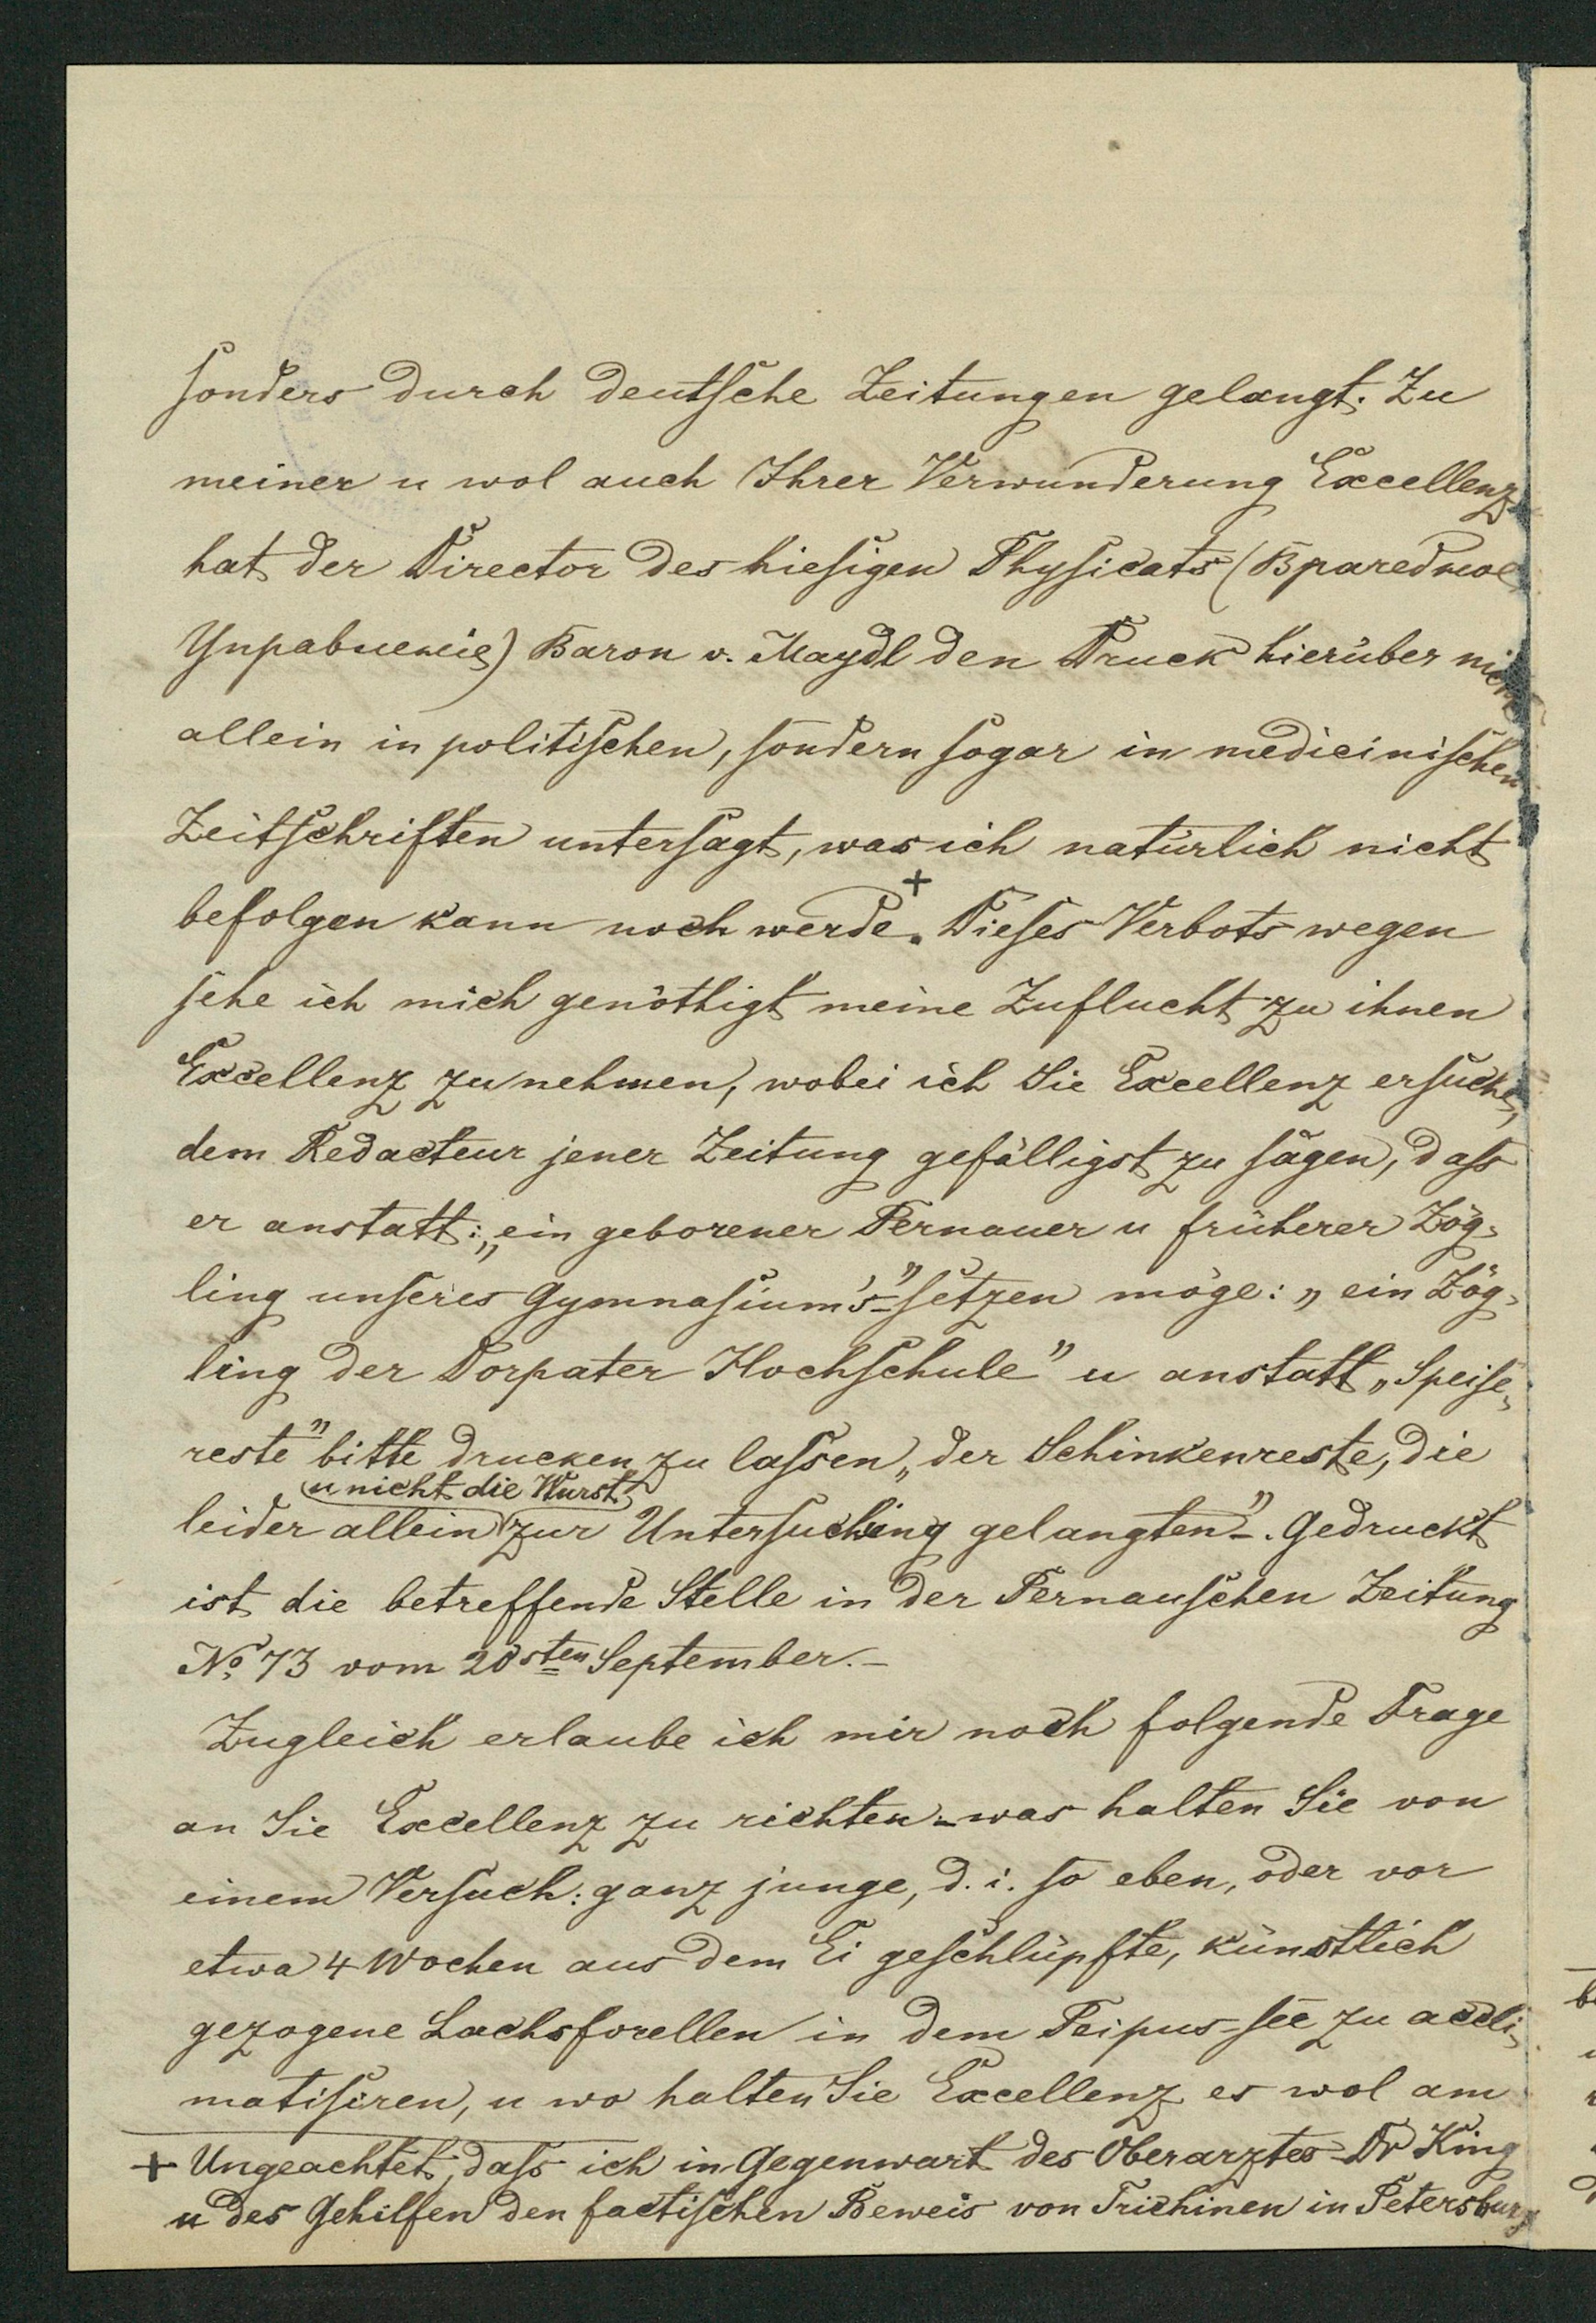 sonders durch deutsche Zeitungen gelangt. Zu
meiner u wol auch Ihrer Verwunderung Excellenz
hat der Director des hiesigen Physicats (Врачебное
Управленіе) Baron v. Maydl den Druck hierüber nicht
allein in politischen, sondern sogar in medicinischen
Zeitschriften untersagt, was ich natürlich nicht
befolgen kann noch werde.+ Dieses Verbots wegen
sehe ich mich genöthigt meine Zuflucht zu ihnen
Excellenz zu nehmen, wobei ich Sie Excellenz ersuche,
dem Redacteur jener Zeitung gefälligst zu sagen, dass
er anstatt: „ein geborener Pernauer u früherer Zög-
ling unseres Gymnasium's" setzen möge: „ein Zög-
ling der Dorpater Hochschule" u anstatt „Speise-
reste" bitte drucken zu lassen „der Schinkenreste, die
u nicht die Wurst
leider allein zur Untersuchung gelangten" –. Gedruckt
ist die betreffende Stelle in der Pernauschen Zeitung
No 73 vom 20sten September. –
Zugleich erlaube ich mir noch folgende Frage
an Sie Excellenz zu richten – was halten Sie von
einem Versuch: ganz junge, d. i. so eben, oder vor
etwa 4 Wochen aus dem Ei geschlüpfte, künstlich
gezogene Lachsforellen in dem Peipus-see zu accli-
matisiren, u wo halten Sie Excellenz es wol am
+ Ungeachtet, dass ich in Gegenwart des Oberarztes Dr King
u des Gehilfen den factischen Beweis von Trichinen in Petersburg